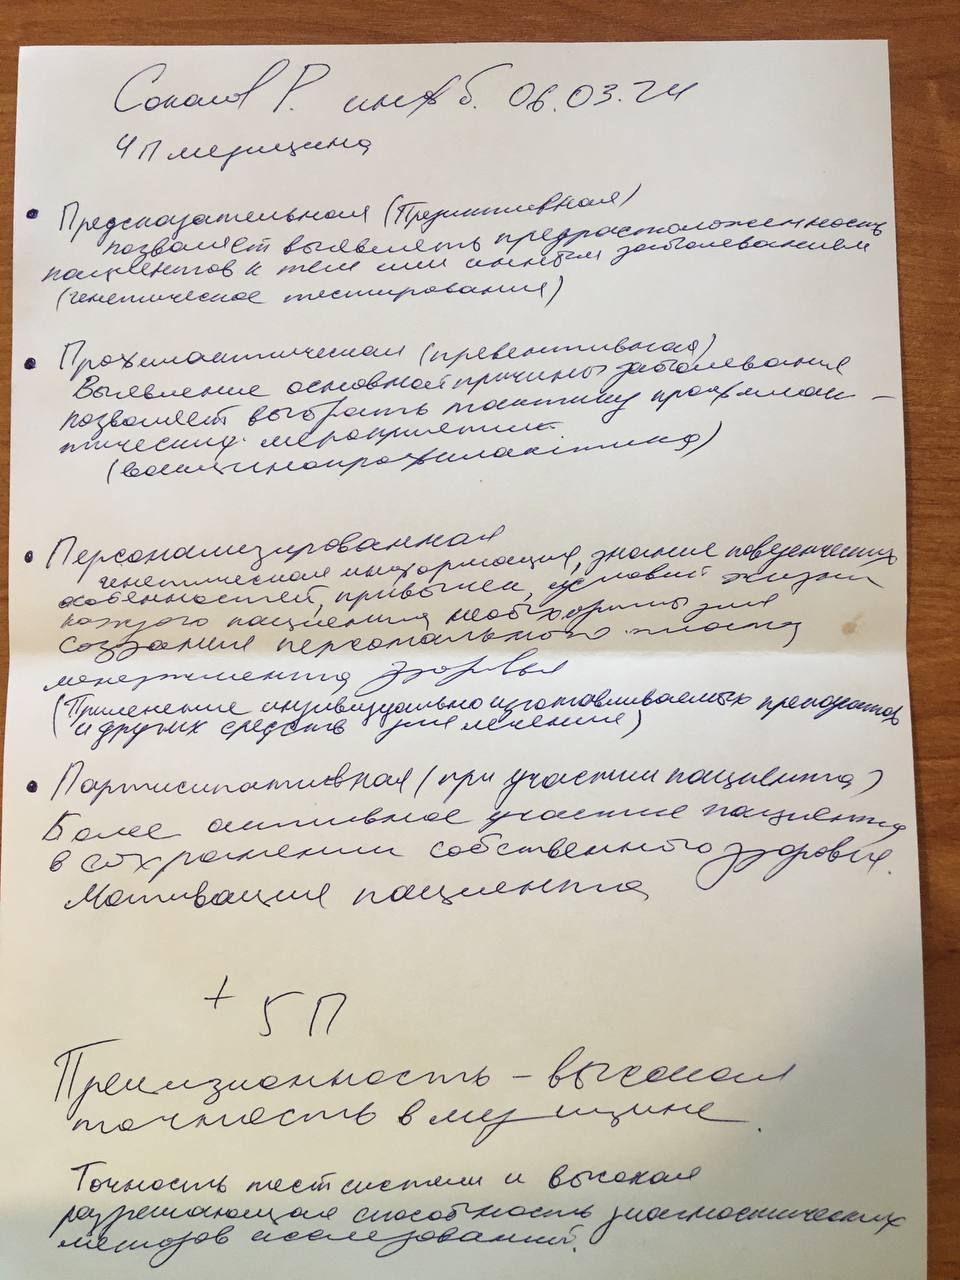 Соколов Р. инф б. 06.03.24
4 П медицина
• Предсказательная (Предиктивная)
позволяет выявлять предрасположенность
пациентов к тем или иным заболеваниям
(генетическое тестирования)
• Профилактическая (превентивная)
Выявление основной причины заболевания
позволяет выбрать тактику профилак-
тических мероприятий.
(вакцинопрофилактика)
• Персонализированная
генетическая информация, знание поведенческих
особенностей, привычек, условий жизни
каждого пациента необходимы для
создания персонального плана
менеджмента здоровья
(Применение индивидуально изготавливаемых препаратов
и других средств для лечения)
• Партисипативная (при участии пациента)
Более активное участие пациента
в сохранении собственного здоровья.
Мотивация пациента
+ 5 П
Прецизионность – высокая
точность в медицине.
Точность тест системы и высокая
разрешающая способность диагностических
методов исследований.